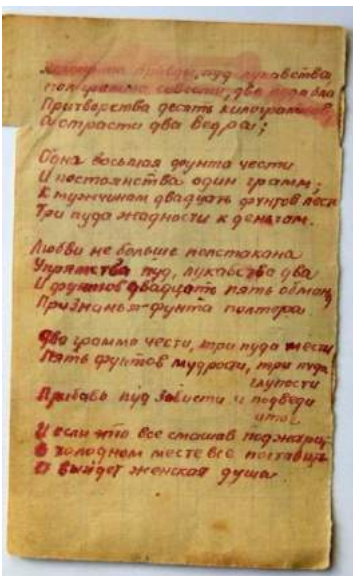 правды, пуд лукавства
полграмма совести, два
Притворства десять килограммов
А страсти два ведра;
Одна восьмая фунта чести
И постоянства один грамм;
К мужчинам двадцать фунтов лести
Три пуда жадности к деньгам.
Любви не больше полстакана
Упрямства пуд, лукавства два
И фунтов двадцать пять обмана,
Признанья-фунта полтора.
Два грамма чести, три пуда мести
Пять фунтов мудрости, три пуда
глупости
Прибавь пуд зависти и подведи
итог
И если это все смешав поджарить
В холодном месте все поставить
То выйдет женская душа